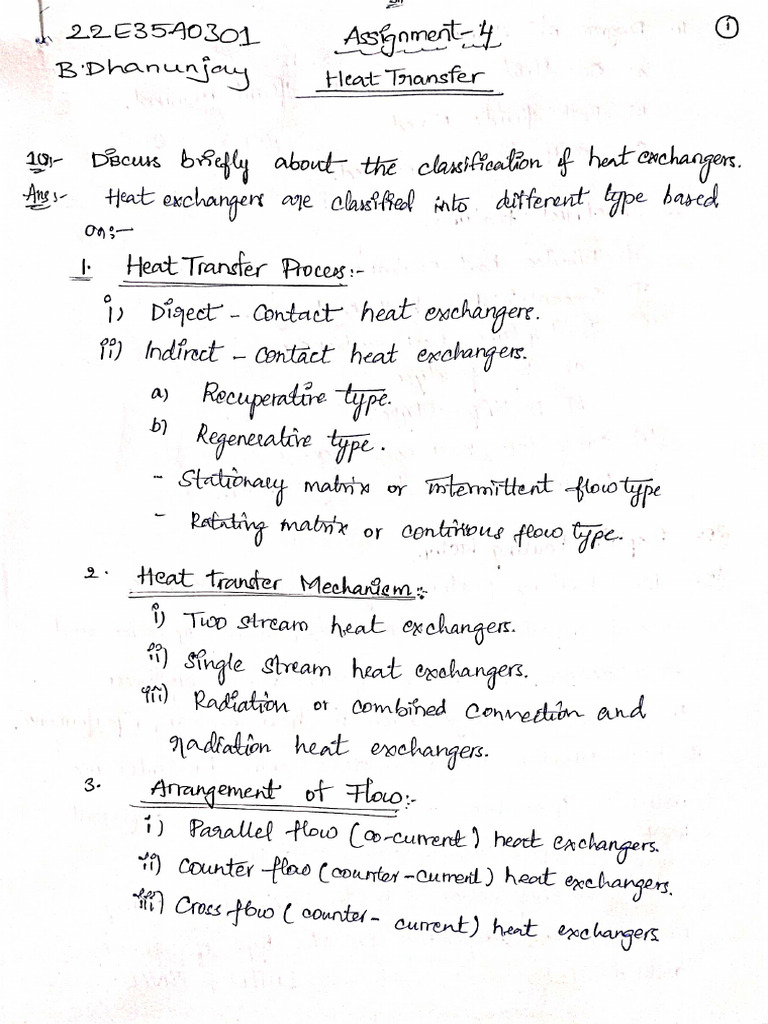 22E35A0301 Assignment-4 1
B.Dhanunjay Heat Transfer
10:- Discuss briefly about the classification of heat exchangers.
Ans:- Heat exchangers are classified into different type based
on:-
1. Heat Transfer Process:-
i) Direct - Contact heat exchangers.
ii) Indirect - contact heat exchangers.
a) Recuperative type.
b) Regenerative type.
- Stationary matrix or intermittent flow type
- Rotating matrix or continous flow type.
2. Heat transfer Mechanism:-
i) Two stream heat exchangers.
ii) Single stream heat exchangers.
iii) Radiation or combined connection and
radiation heat exchangers.
3. Arrangement of Flow:-
i) Parallel flow (co-current) heat exchangers.
ii) Counter flow (counter-current) heat exchangers.
iii) Cross flow (counter- current) heat exchangers